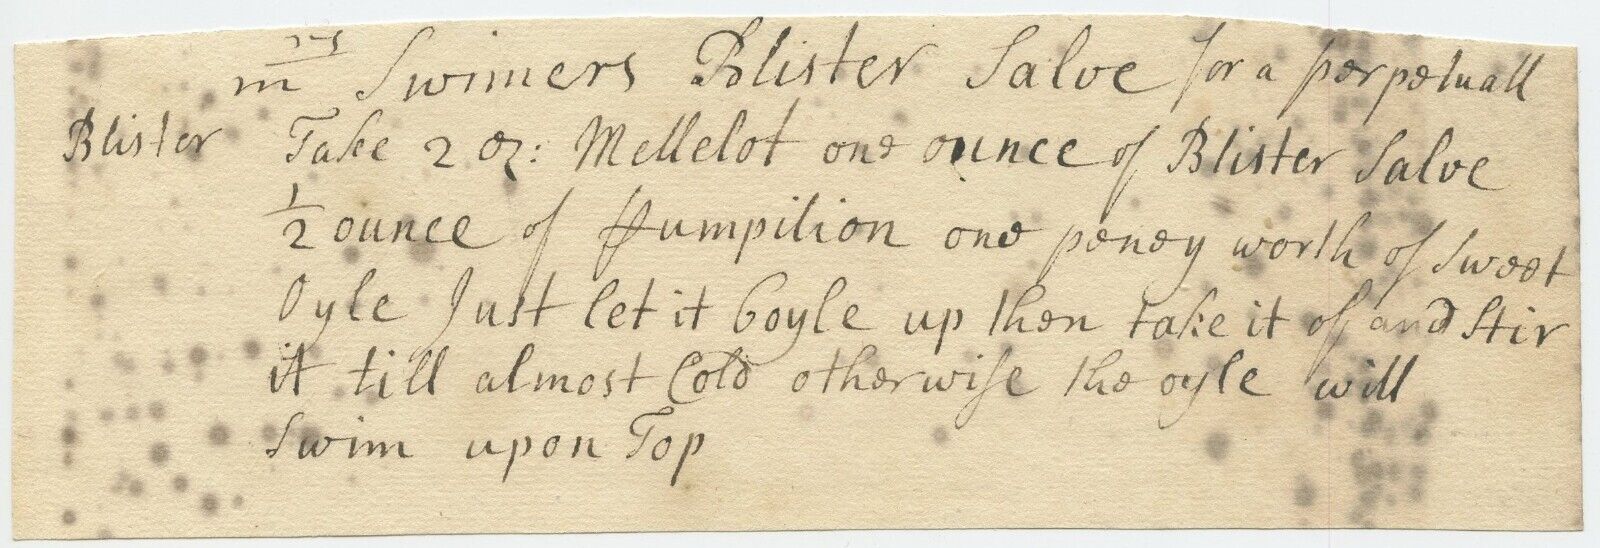 mrs Swimers Blister Salve for a perpetuall
Blister Take 2 oz: Mellelot one ounce of Blister Salve
1/2 ounce of pumpilion one peney worth of Sweet
Oyle Just let it boyle up then take it of and Stir
it till almost Cold otherwise the oyle will
Swim upon Top